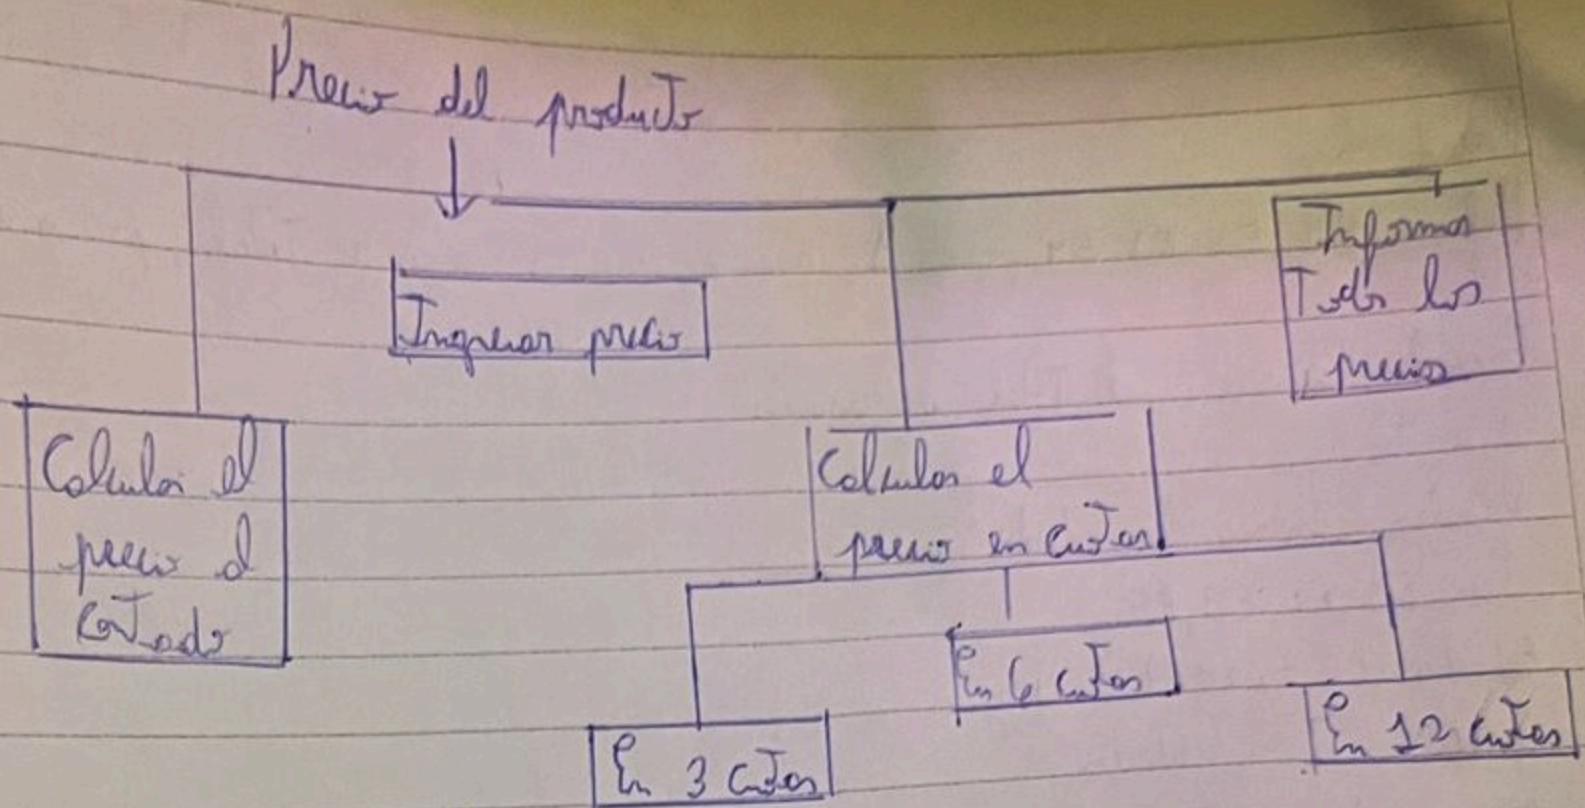 Precio del producto
Ingresar precio
Informar
Todos los
precios
Calcular el
precio al
contado
Calcular el
precio en cuotas
En 3 cuotas
En 6 cuotas
En 12 cuotas